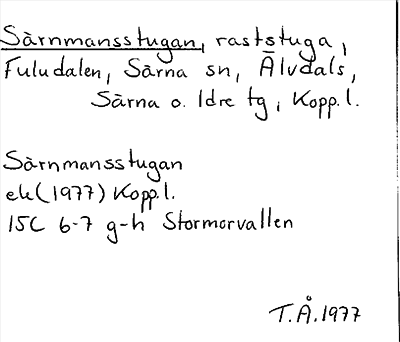 Särnmansstugan, raststuga,
Fuludalen, Särna sn, Älvdals,
Särna o. Idre tg, Kopp.l.
Särnmansstugan
ek (1977) Kopp.l.
15C 6-7 g-h Stormorvallen
T.Å.1977